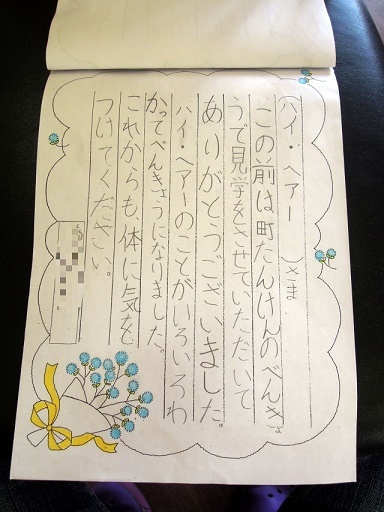 (ハイ・ヘアー )さま
この前は町たんけんのべんきょ
うで見学をさせていただいて
ありがとうございました。
ハイ・ヘアーのことがいろいろわ
かってべんきょうになりました。
これからも、体に気を
つけてください。